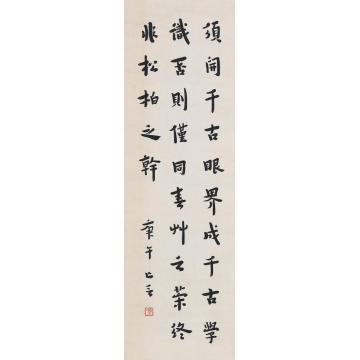 須開千古眼界成千古學
識否則僅同春艸之榮終
非松柏之幹
庚午